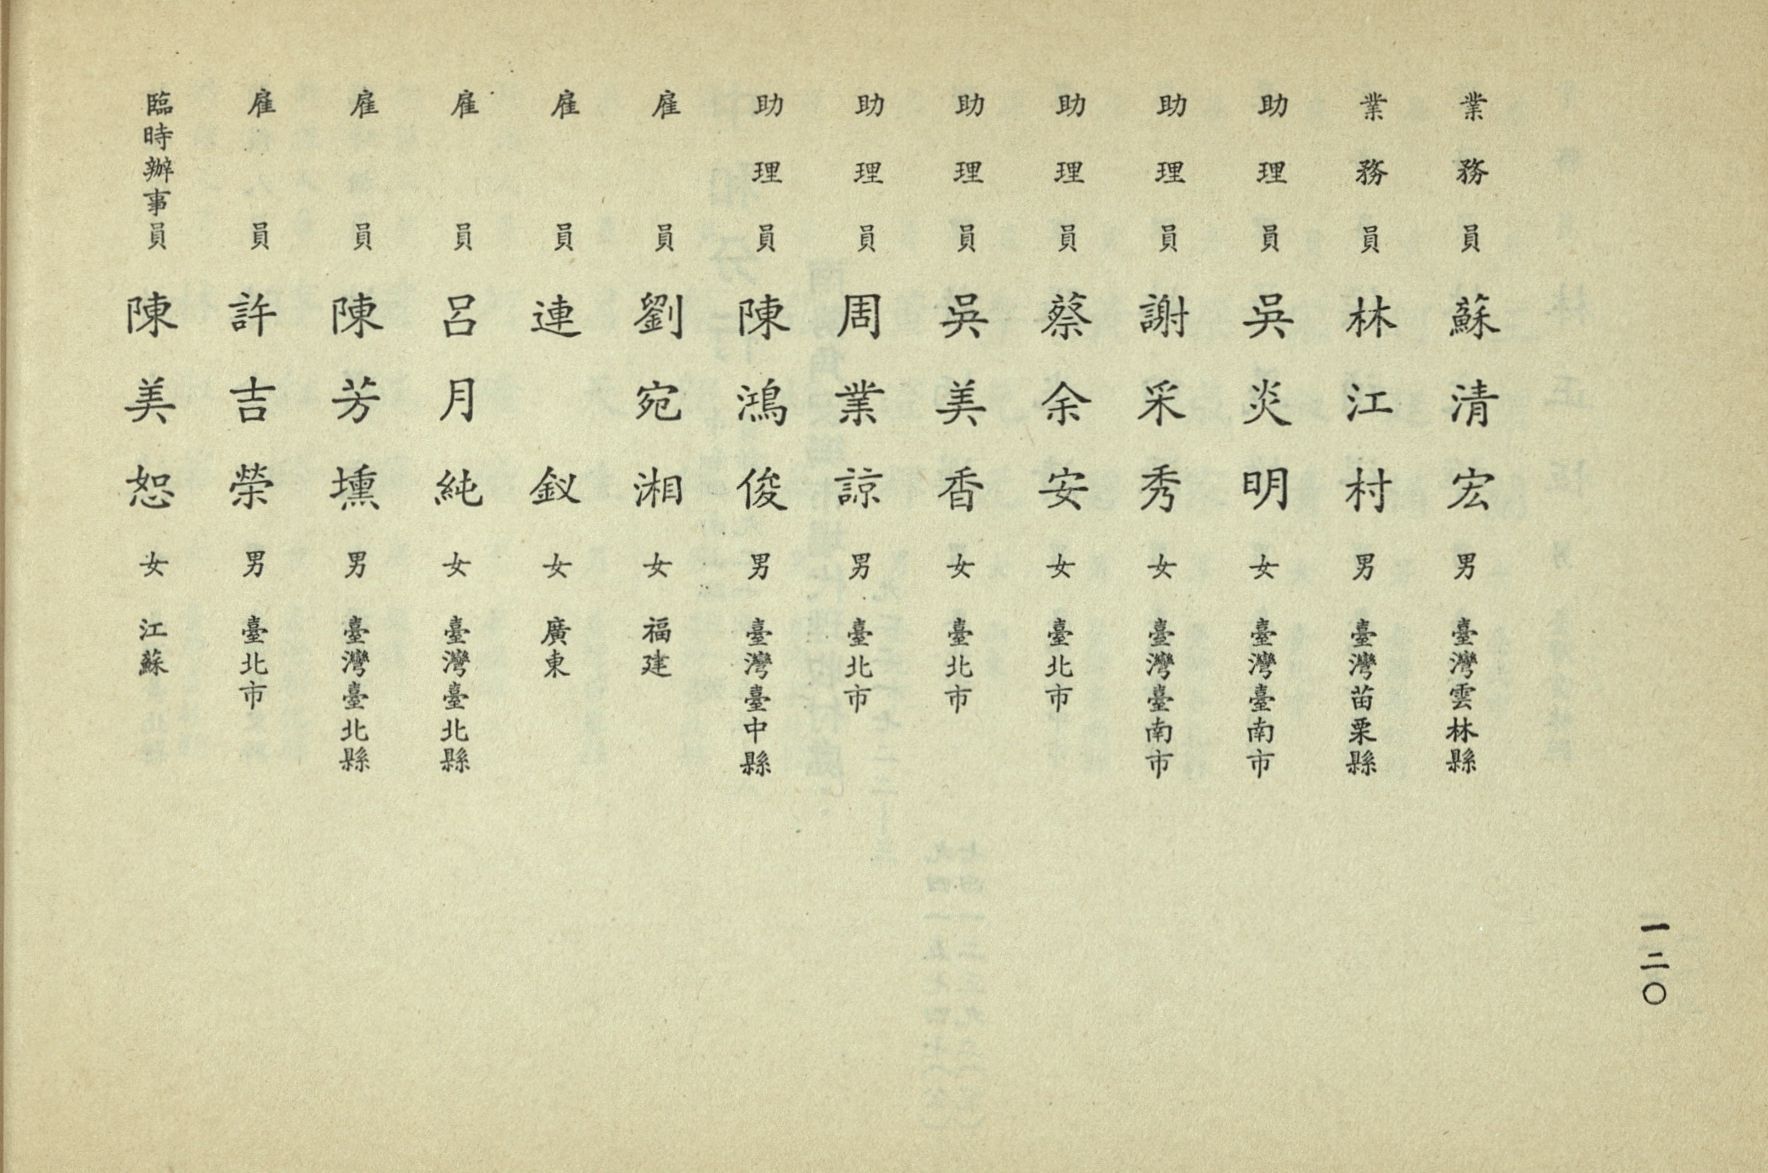 一二〇
業務員 蘇清宏 男 臺灣雲林縣
業務員 林江村 男 臺灣苗栗縣
助理員 吳炎明 女 臺灣臺南市
助理員 謝采秀 女 臺灣臺南市
助理員 蔡余安 女 臺北市
助理員 吳美香 女 臺北市
助理員 周業諒 男 臺北市
助理員 陳鴻俊 男 臺灣臺中縣
雇員 劉宛湘 女 福建
雇員 連釵 女 廣東
雇員 呂月純 女 臺灣臺北縣
雇員 陳芳壎 男 臺灣臺北縣
雇員 許吉榮 男 臺北市
臨時辦事員 陳美恕 女 江蘇